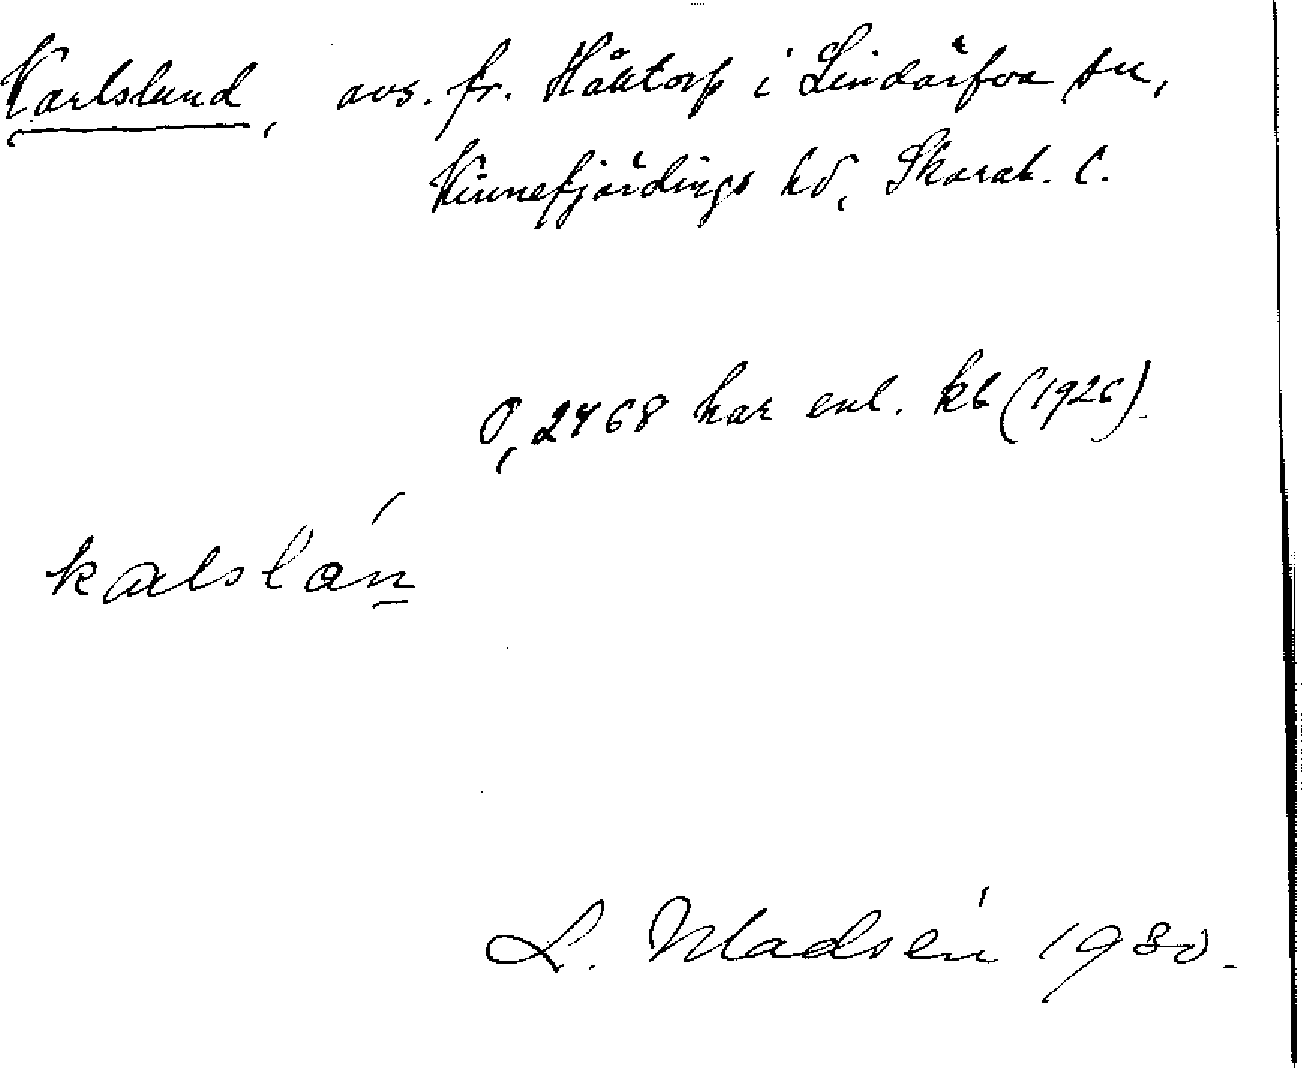 Karlslund, avs. fr. Håltorp i Lindärfva sn,
Kinnefjärdings hd, Skarab. l.
0,2468 har enl. kb (1926).
kalslán
L. Madsén 1980.